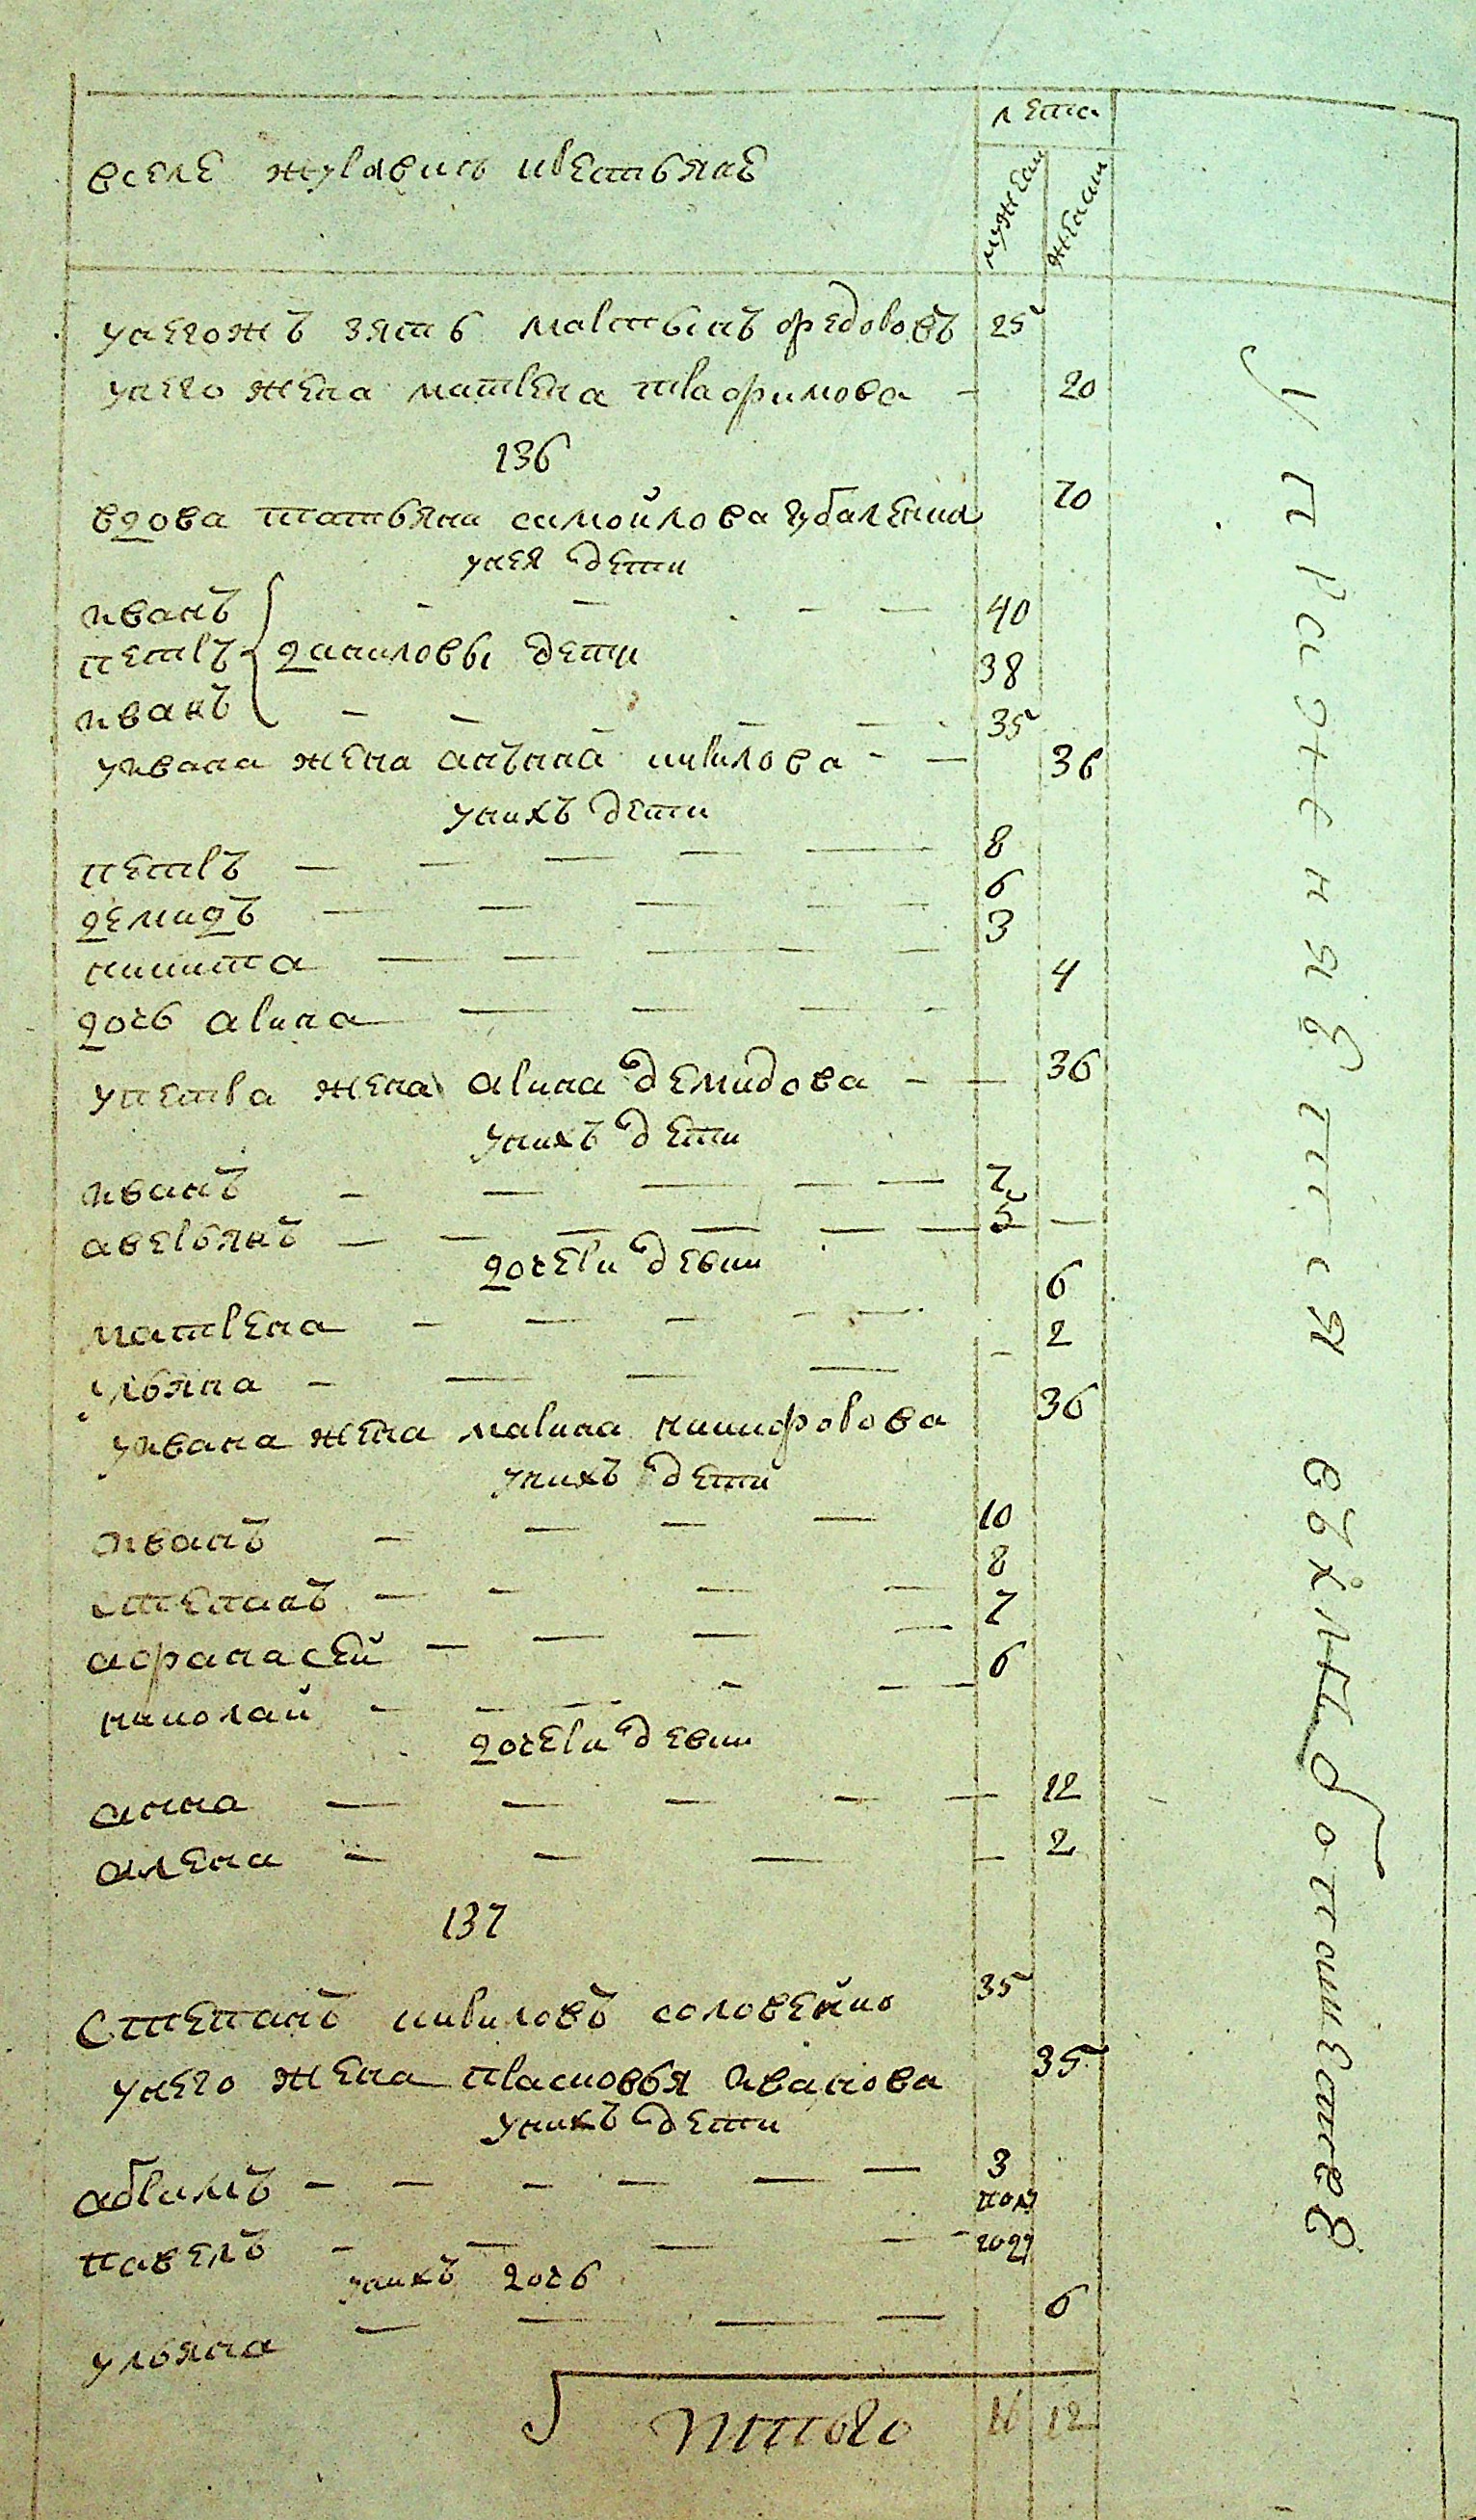 вселе журавки крестьяне
лета
мужеск
женск
унегожъ зять мартынъ федоровъ 25
унего жена матрена трафимова — 20
136
вдова татьяна самойлова губаленка 70
унея дети
иванъ — — — — 40
петръ даниловы дети 38
иванъ — — — — — 35
уивана жена анънна кирилова — — 36
унихъ дети
петръ — — — — — 8
демидъ — — — — — 6
никита — — — — — 3
дочь арина — — — 4
упетра жена арина демидова — — 36
унихъ дети
иванъ — — — — — 7
аверьянъ — — — — — — 5 —
дочери девки
матрена — — — — — 6
ульяна — — — — — 2
уивана жена марина никифорова 36
унихъ дети
иванъ — — — — 10
степанъ — — — — 8
афанасей — — — — 7
николай — — — — — 6
дочери девки
анна — — — — — 12
алена — — — — 2
137
Степанъ кириловъ соловейко 35
унего жена прасковья иванова 35
унихъ дети
абрамъ — — — — — — 3
павелъ — — — — — пол году
унихъ дочь
ульяна — — — — 6
итого 16 12